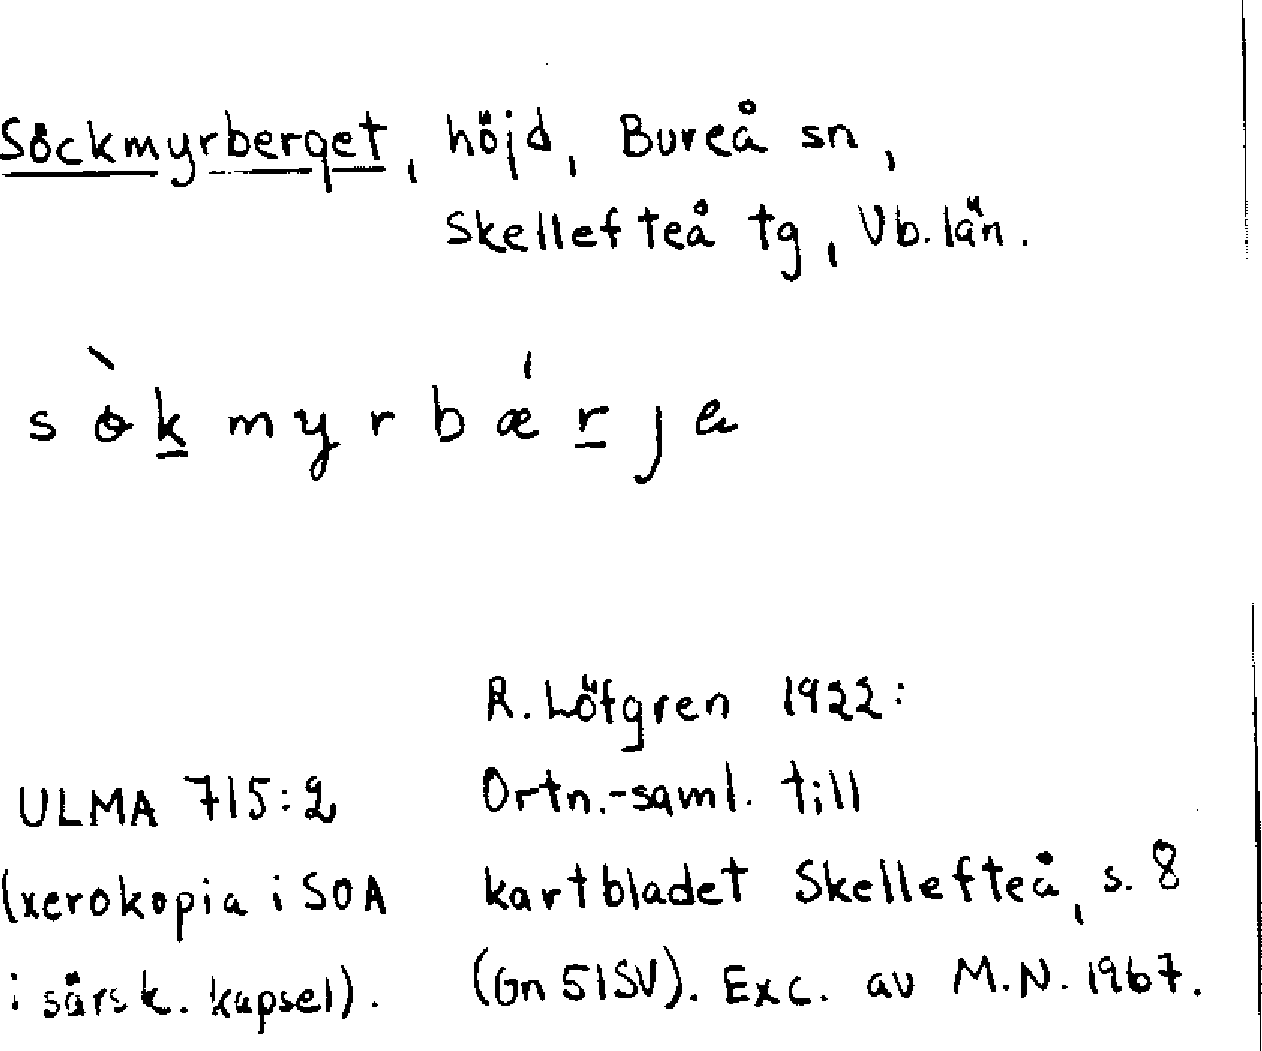 Söckmyrberget, höjd, Bureå sn,
Skellefteå tg, Vb. län.
sò̵k̲myrbǽr̲ja
R. Löfgren 1922:
ULMA 715:2 Ortn.-saml. till
(xerokopia i SOA kartbladet Skellefteå, s. 8
i särsk. kapsel). (Gn 51SV). Exc. av M.N. 1967.